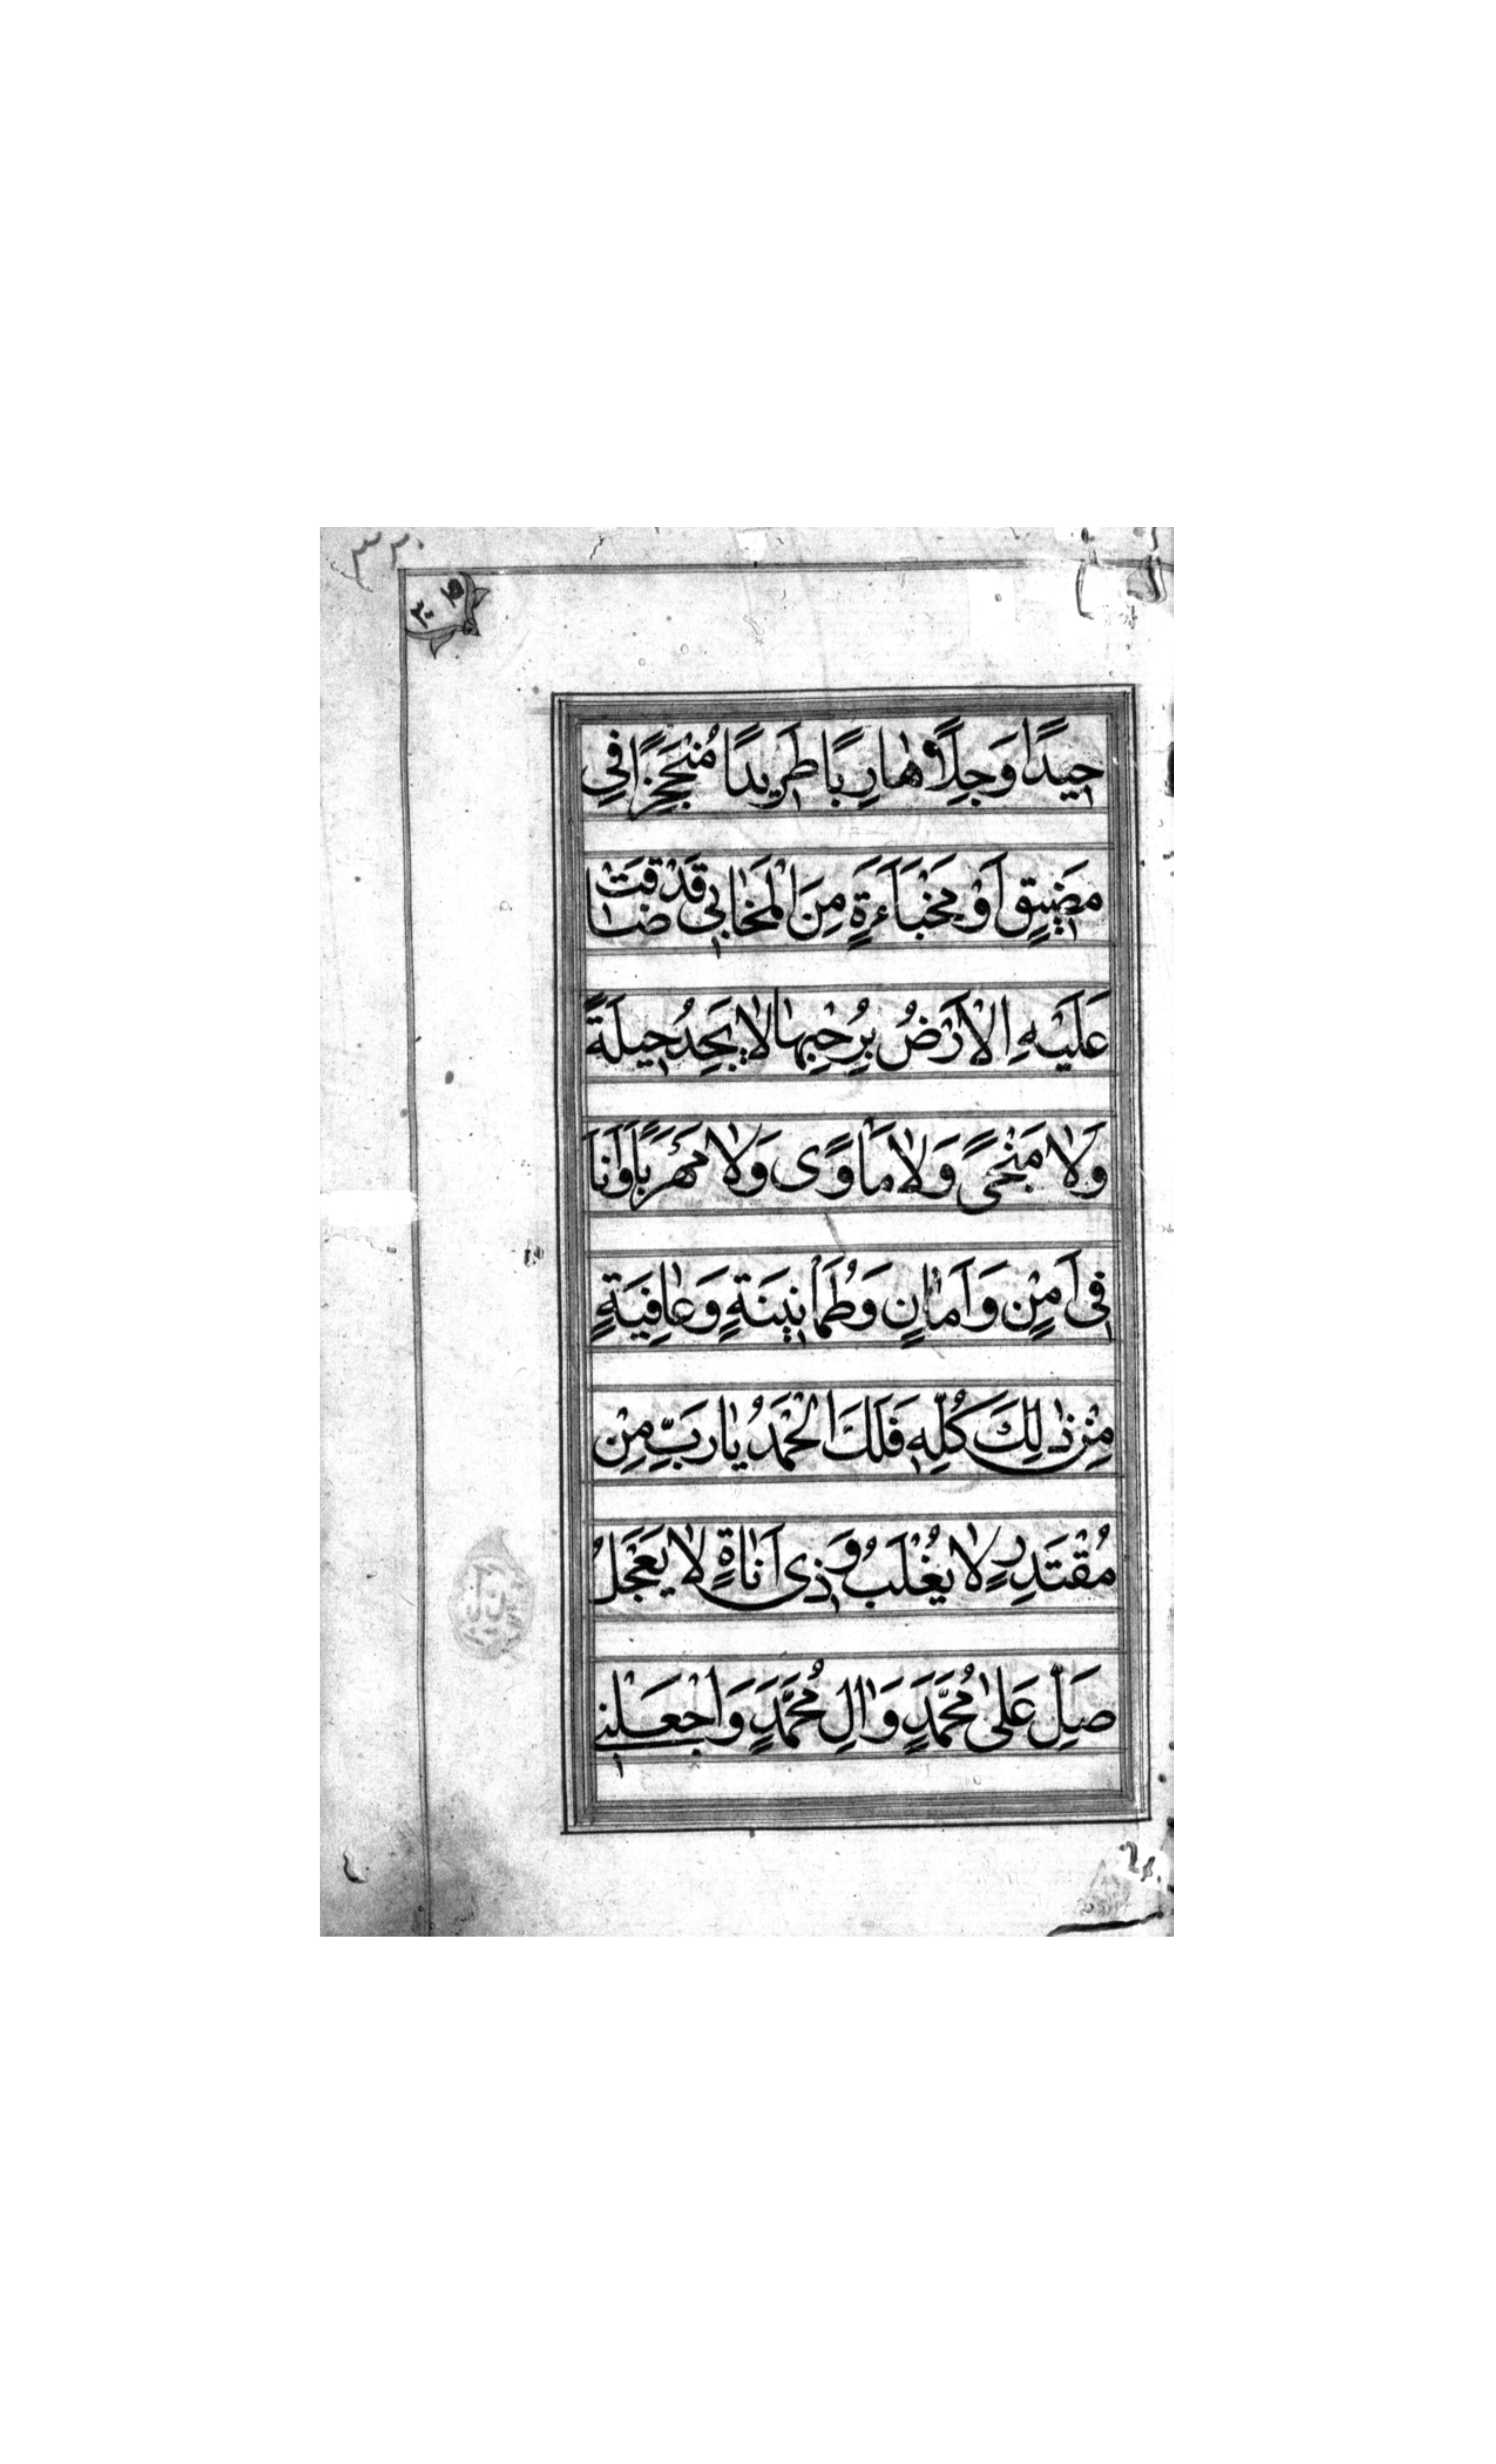 ٣٢٠
حِيدًا وَجِلًا هٰارِبًا طَرِيدًا مُنْجَحِزًا فِي
مَضِيقٍ اَوْ مَخْبَاَءَةٍ مِنَ الْمَخٰابِي قَدْ ضٰاقَتْ
عَلَيْهِ الْاَرْضُ بِرُحْبِهٰا لٰا يَجِدُ حِيلَةً
وَلٰا مَنْجىً وَلٰا مَاْوًى وَلٰا مَهْرَبًا وَاَنَا
فِي اَمْنٍ وَاَمٰانٍ وَطُمَاْنِينَةٍ وَعٰافِيَةٍ
مِنْ ذٰلِكَ كُلِّهِ فَلَكَ الْحَمْدُ يٰا رَبِّ مِنْ
مُقْتَدِرٍ لٰا يُغْلَبُ وَذِي اَنٰاةٍ لٰا يَعْجَلُ
صَلِّ عَلىٰ مُحَمَّدٍ وَاٰلِ مُحَمَّدٍ وَاجْعَلْنِي